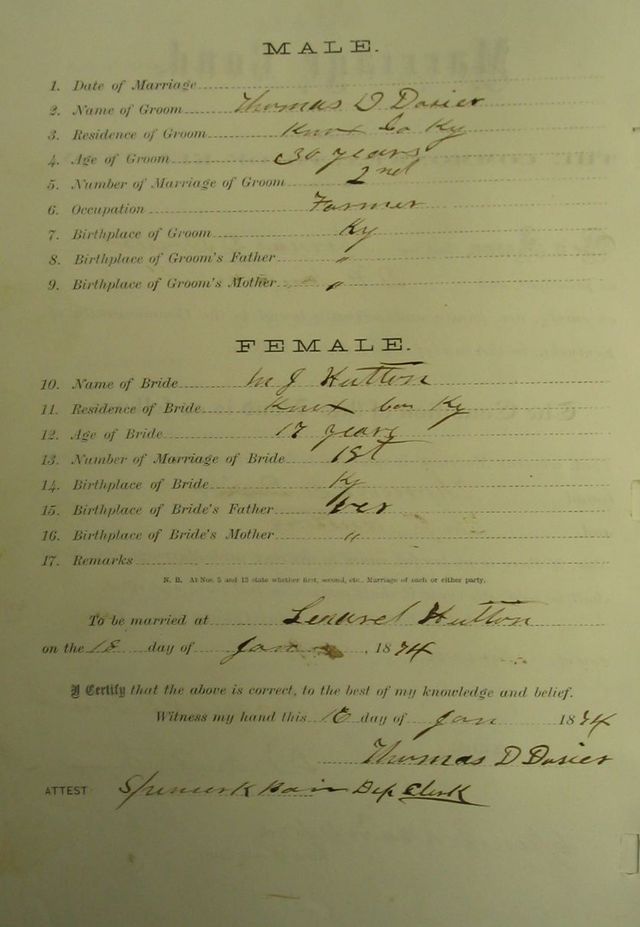 MALE.
1. Date of Marriage
2. Name of Groom Thomas D Dosier
3. Residence of Groom Knox Co Ky
4. Age of Groom 30 years
5. Number of Marriage of Groom 2nd
6. Occupation Farmer
7. Birthplace of Groom Ky
8. Birthplace of Groom's Father "
9. Birthplace of Groom's Mother "
FEMALE.
10. Name of Bride M J Hutton
11. Residence of Bride Knox Co Ky
12. Age of Bride 17 years
13. Number of Marriage of Bride 1st
14. Birthplace of Bride Ky
15. Birthplace of Bride's Father
16. Birthplace of Bride's Mother "
17. Remarks
N. B. At Nos. 5 and 13 state whether first, second, etc., Marriage of each or either party.
To be married at Hutton
on the 18 day of Jan , 1874
I Certify that the above is correct, to the best of my knowledge and belief.
Witness my hand this day of Jan 1874
Thomas D Dosier
ATTEST Dep Clerk